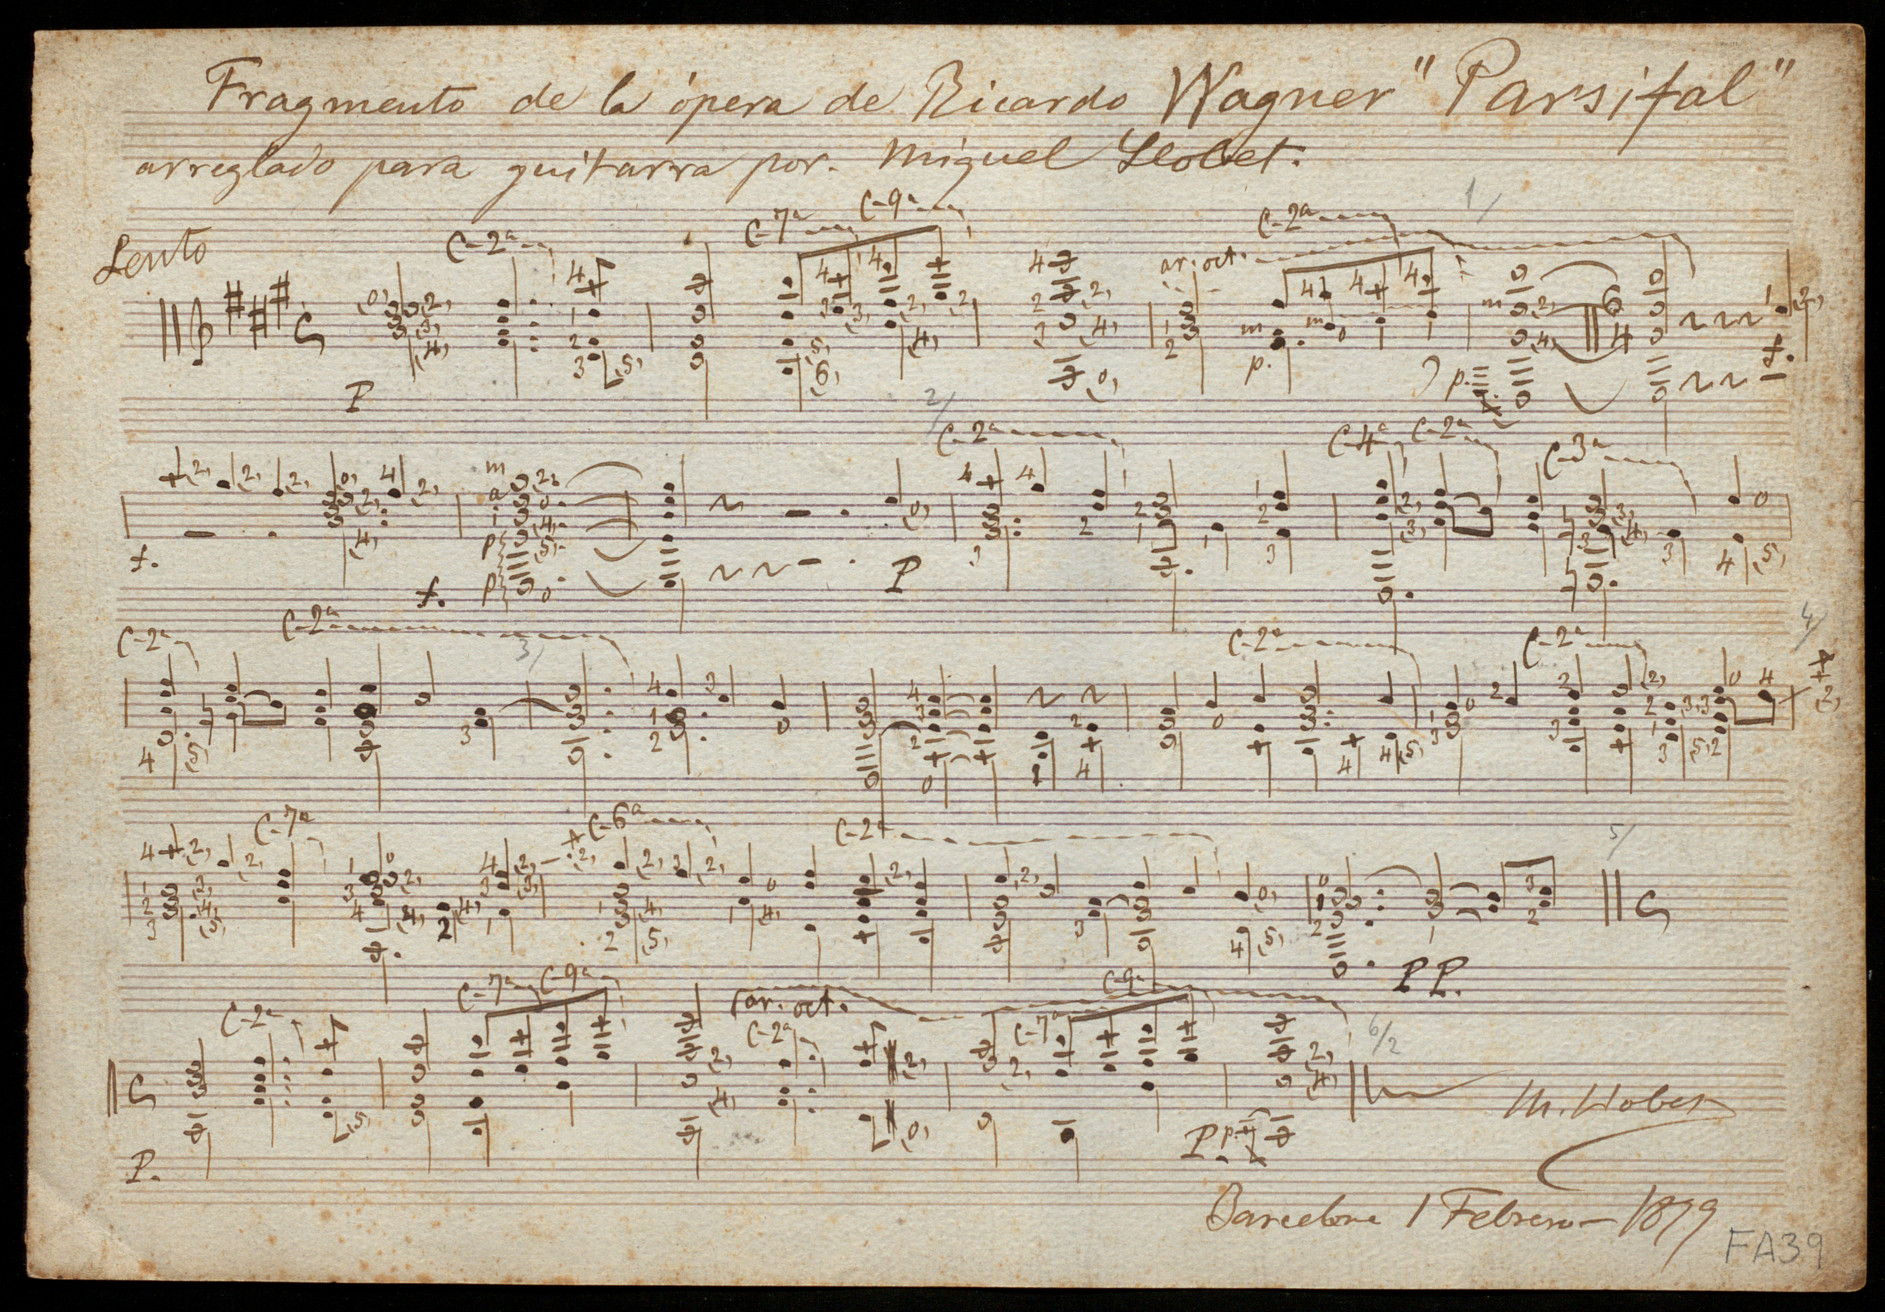 Fragmento de la ópera de Ricardo Wagner "Parsifal"
arreglado para guitarra por. Miguel Llobet.
1/
Lento
C-2ª C-7ª C-9ª ar. oct. C-2ª
P m p. m m p. f.
2/
C-2ª C-4ª C-2ª C-3ª
f. m a i p p f. P
3/ 4/
C-2ª C-2ª C-2ª C-2ª
5/
C-7ª C-6ª C-2ª
PP.
C-2ª C-7ª C-9ª ar. oct. C-2ª C-7ª C-9ª
6/2
P. P. p.
M. Llobet
Barcelona 1 Febrero - 1899
FA39